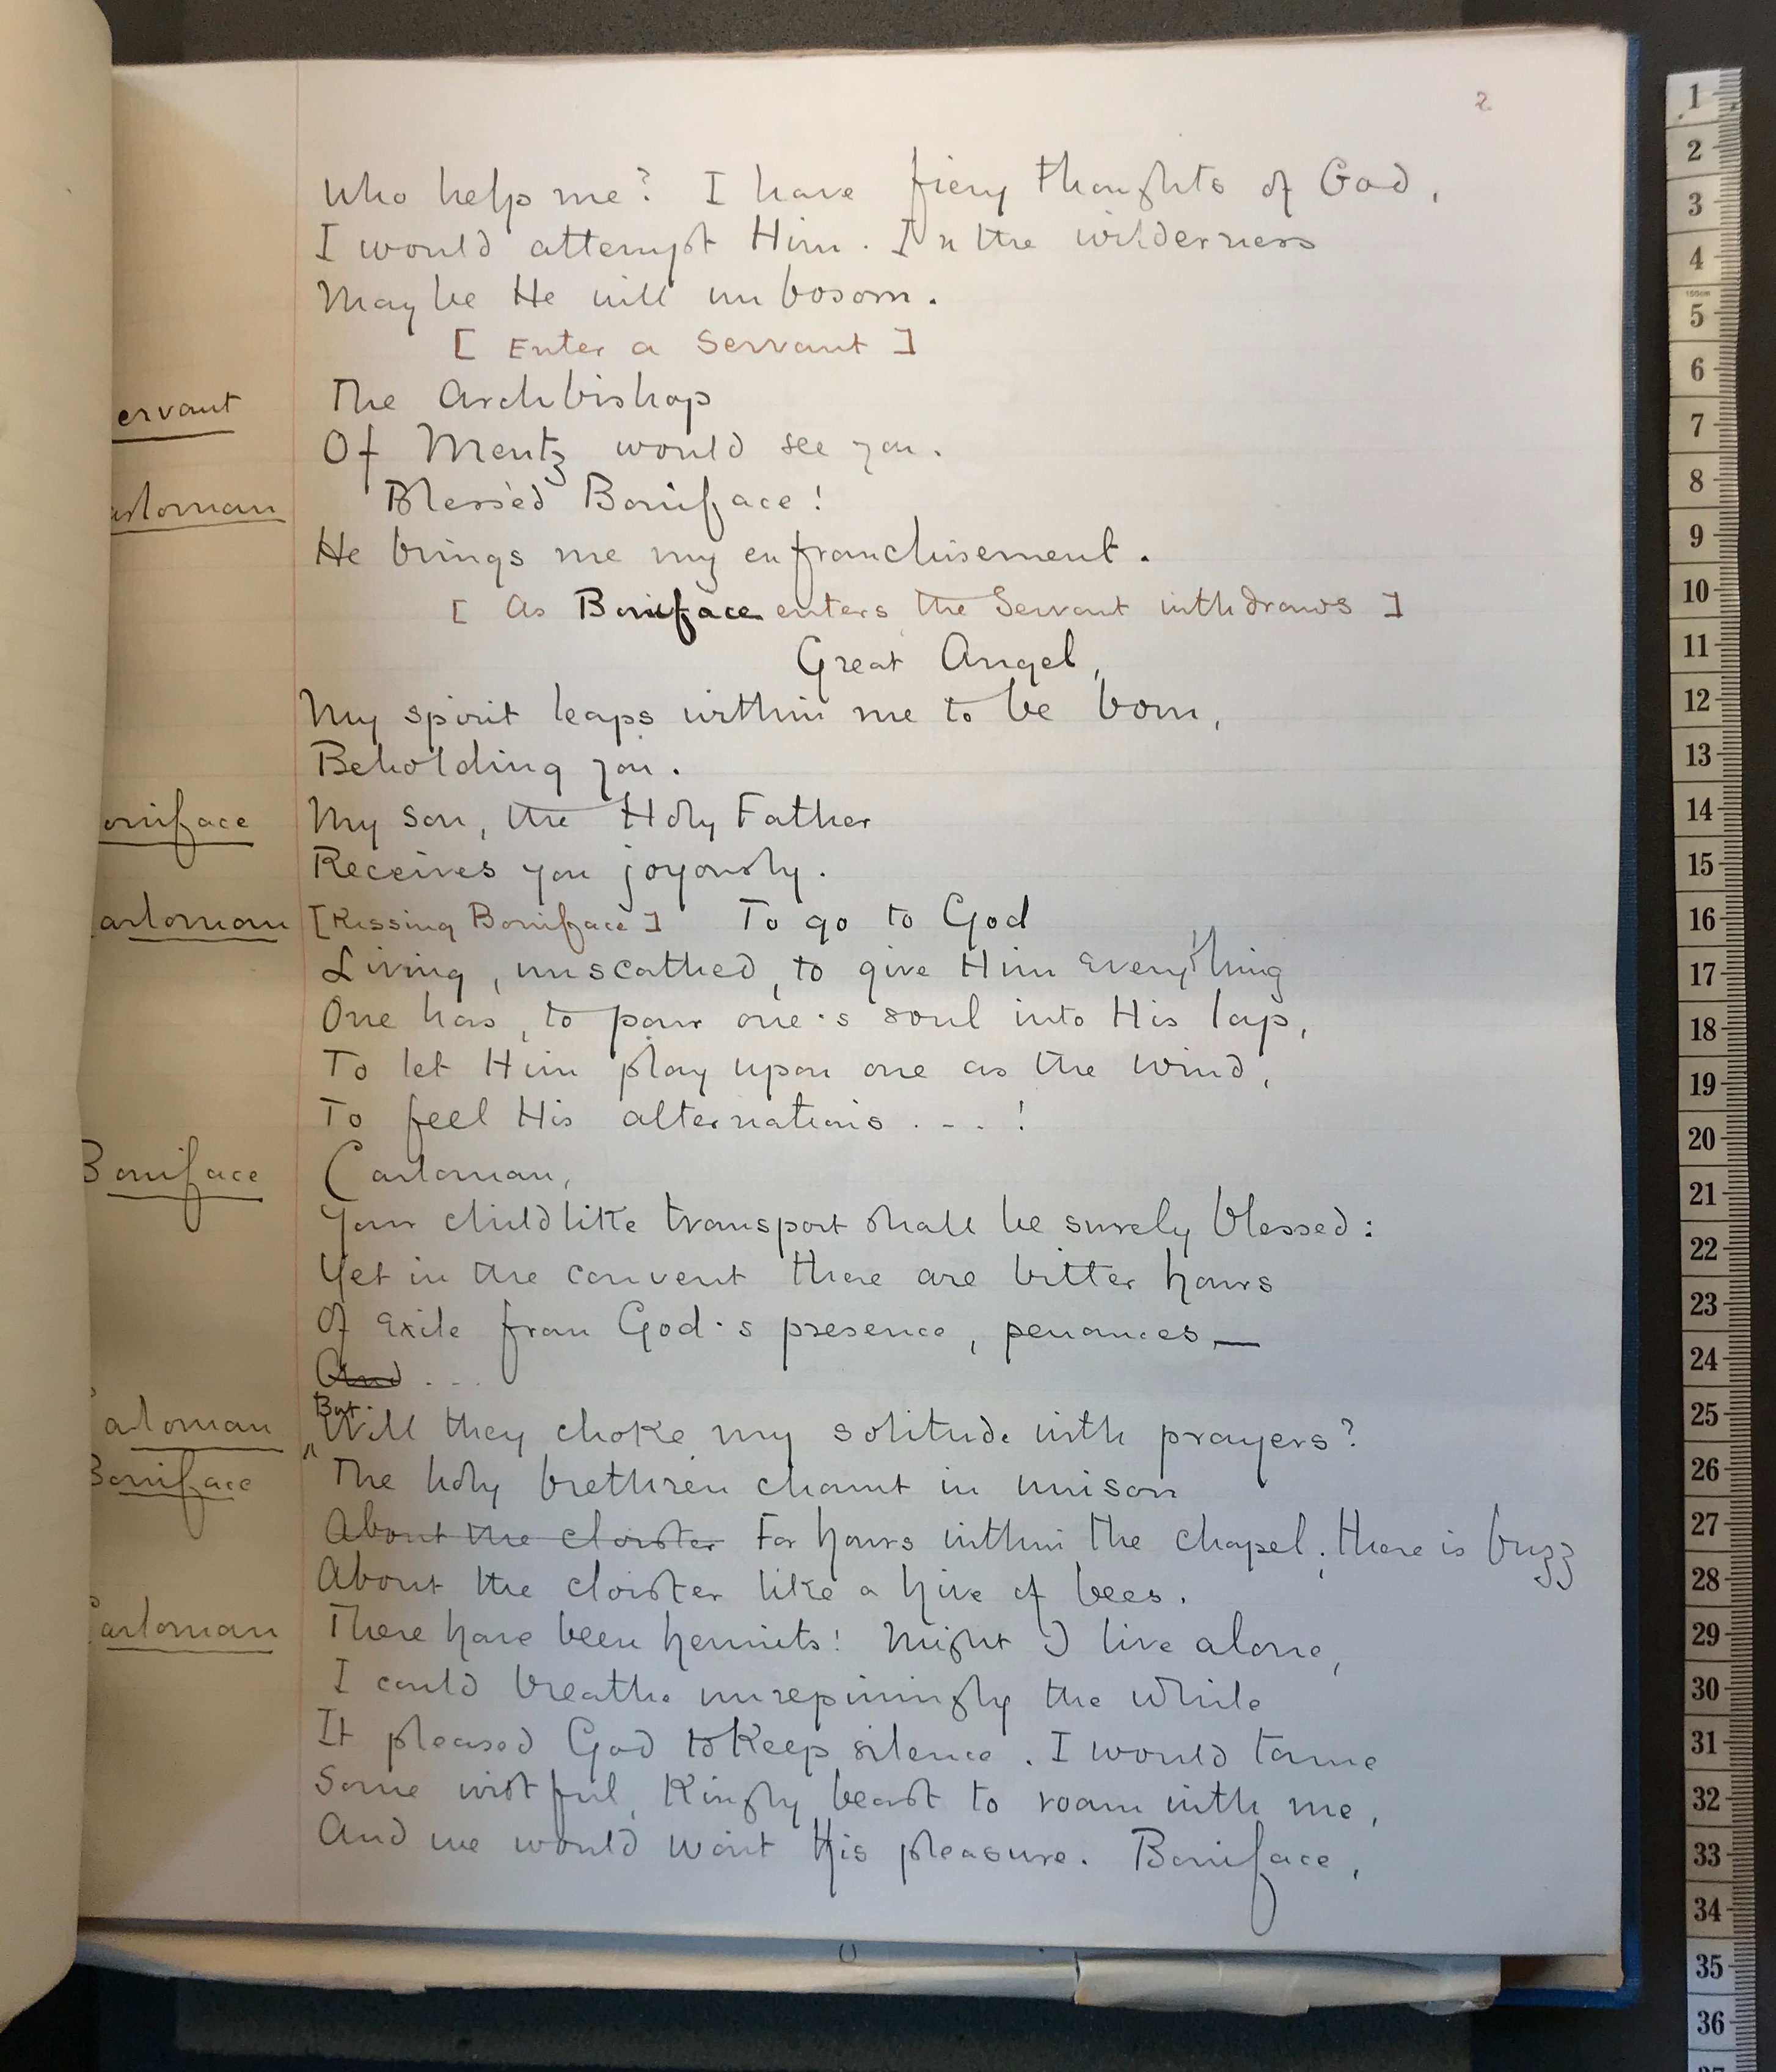 2
Who help me? I have fiery thoughts of God,
I would attempt Him. In the wilderness
Maybe He will unbosom.
[Enter a Servant]
ervant The Archbishop
Of Mentz would see you.
arloman Blessèd Boniface!
He brings me my enfranchisement.
[As Boniface enters the Servant withdraws]
Great Angel,
My spirit leaps within me to be born,
Beholding you.
oniface My son, the Holy Father
Receives you joyously.
arloman [Kissing Boniface] To go to God
Living, unscathed, to give Him everything
One has, to pour one's soul into His lap,
To let Him play upon one as the wind,
To feel His alternations . . . !
Boniface Carloman,
Your childlike transport shall be surely blessed:
Yet in the convent there are bitter hours
Of exile from God's presence, penances —
And . . .
But
arloman Will they choke my solitude with prayers?
Boniface The holy brethren chaunt in unison
About the cloister For hours within the chapel; there is buzz
About the cloister like a hive of bees.
Carloman There have been hermits! Might I live alone,
I could breathe unrepiningly the while
It pleased God to keep silence. I would tame
Some wistful, kingly beast to roam with me,
And we would wait His pleasure. Boniface,
1
2
3
4
5
6
7
8
9
10
11
12
13
14
15
16
17
18
19
20
21
22
23
24
25
26
27
28
29
30
31
32
33
34
35
36